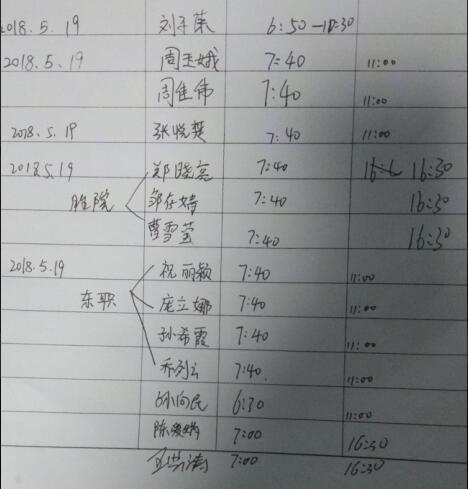 2018.5.19 刘子荣 6:50-11:30
2018.5.19 周玉娥 7:40 11:00
周佳伟 7:40 11:00
2018.5.19 张悦楚 7:40 11:00
2018.5.19 郑晓亮 7:40 16:30
胜院 邹在婧 7:40 16:30
曹雪莹 7:40 16:30
2018.5.19 祝丽颖 7:40 11:00
东职 庞立娜 7:40 11:00
孙希霞 7:40 11:00
乔列云 7:40 11:00
孙向民 6:30 11:00
7:00 16:30
7:00 16:30